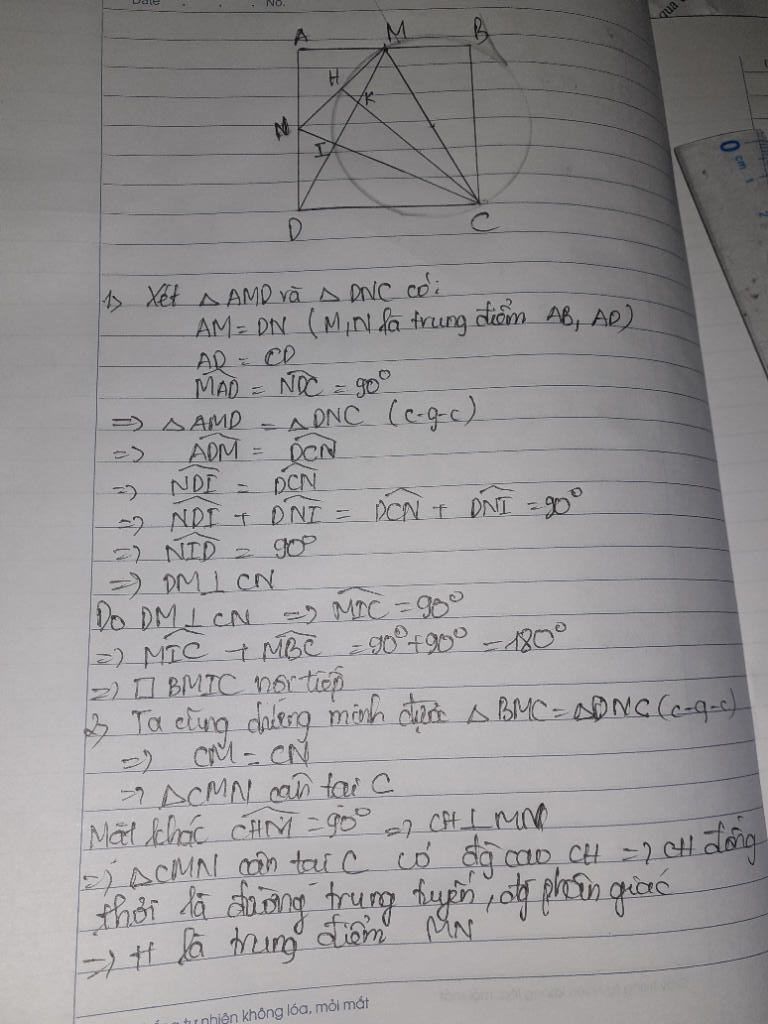 Date . . No.
qua
A M B
H
K
N
I
D C
0
cm 1
2
1> Xét △AMD và △DNC có:
AM = DN (M,N là trung điểm AB, AD)
AD = CD
MAD = NDC = 90°
=> △AMD = △DNC (c-g-c)
=> ADM = DCN
=> NDI = DCN
=> NDI + DNI = DCN + DNI = 90°
=> NID = 90°
=> DM ⊥ CN
Do DM ⊥ CN => MIC = 90°
=> MIC + MBC = 90° + 90° = 180°
=> □ BMIC nội tiếp
2> Ta cũng chứng minh được △BMC = △DNC (c-g-c)
=> CM = CN
=> △CMN cân tại C
Mặt khác CHM = 90° => CH ⊥ MN
=> △CMN cân tại C có đg cao CH => CH đồng
thời là đường trung tuyến, đg phân giác
=> H là trung điểm MN
tự nhiên không lóa, mỏi mắt